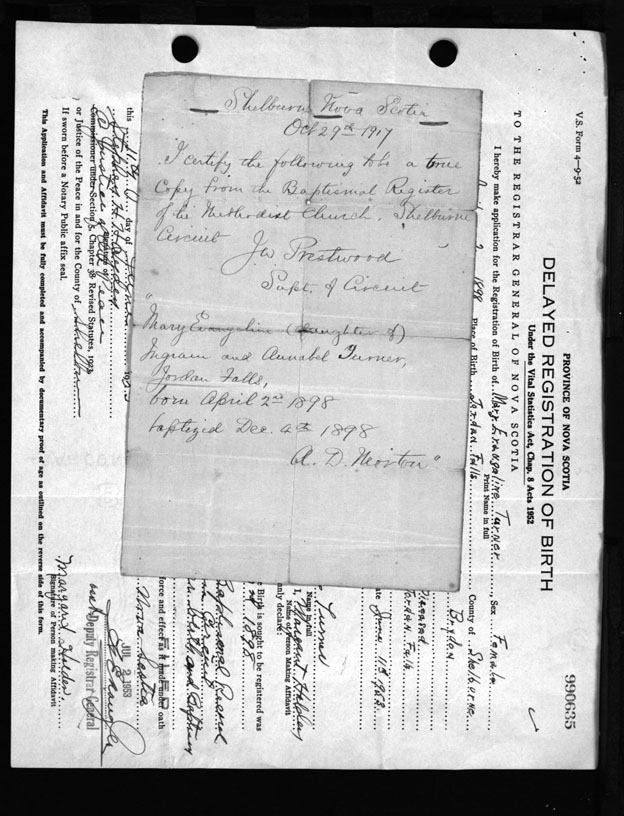 Shelburne Nova Scotia
Oct 29th 1917
I certify the following to be a true
Copy from the Baptismal Register
of the Methodist Church, Shelburne
Circuit
JW Prestwood
Supt. of Circuit
"Mary Evangeline (daughter of)
Ingram and Annabel Turner,
Jordan Falls,
born April 2nd 1898
baptized Dec. 4th 1898
A. D. Morton"
V.S. Form 4-9-52
PROVINCE OF NOVA SCOTIA
DELAYED REGISTRATION OF BIRTH
Under the Vital Statistics Act, Chap. 8 Acts 1952
990635
TO THE REGISTRAR GENERAL OF NOVA SCOTIA
I hereby make application for the Registration of Birth of Mary Evangeline Turner, Sex Female
Print Name in full
2 1898 Place of Birth Jordan Falls County of Shelburne
Jordan Falls
June 11th
Name in full
I, Margaret Holden
Name of Person Making Affidavit
only declare:
Birth is sought to be registered was
of 1898
Baptismal Record
Circuit
Birth and Baptism
force and effect as if made under oath
Nova Scotia
this day of
Commissioner under Section 5, Chapter 38 Revised Statutes, 1923
or Justice of the Peace in and for the County of Shelburne
If sworn before a Notary Public affix seal.
Margaret Holden
Signature of Person making Affidavit
JUL 2 1953
Deputy Registrar General
This Application and Affidavit must be fully completed and accompanied by documentary proof of age as outlined on the reverse side of this form.